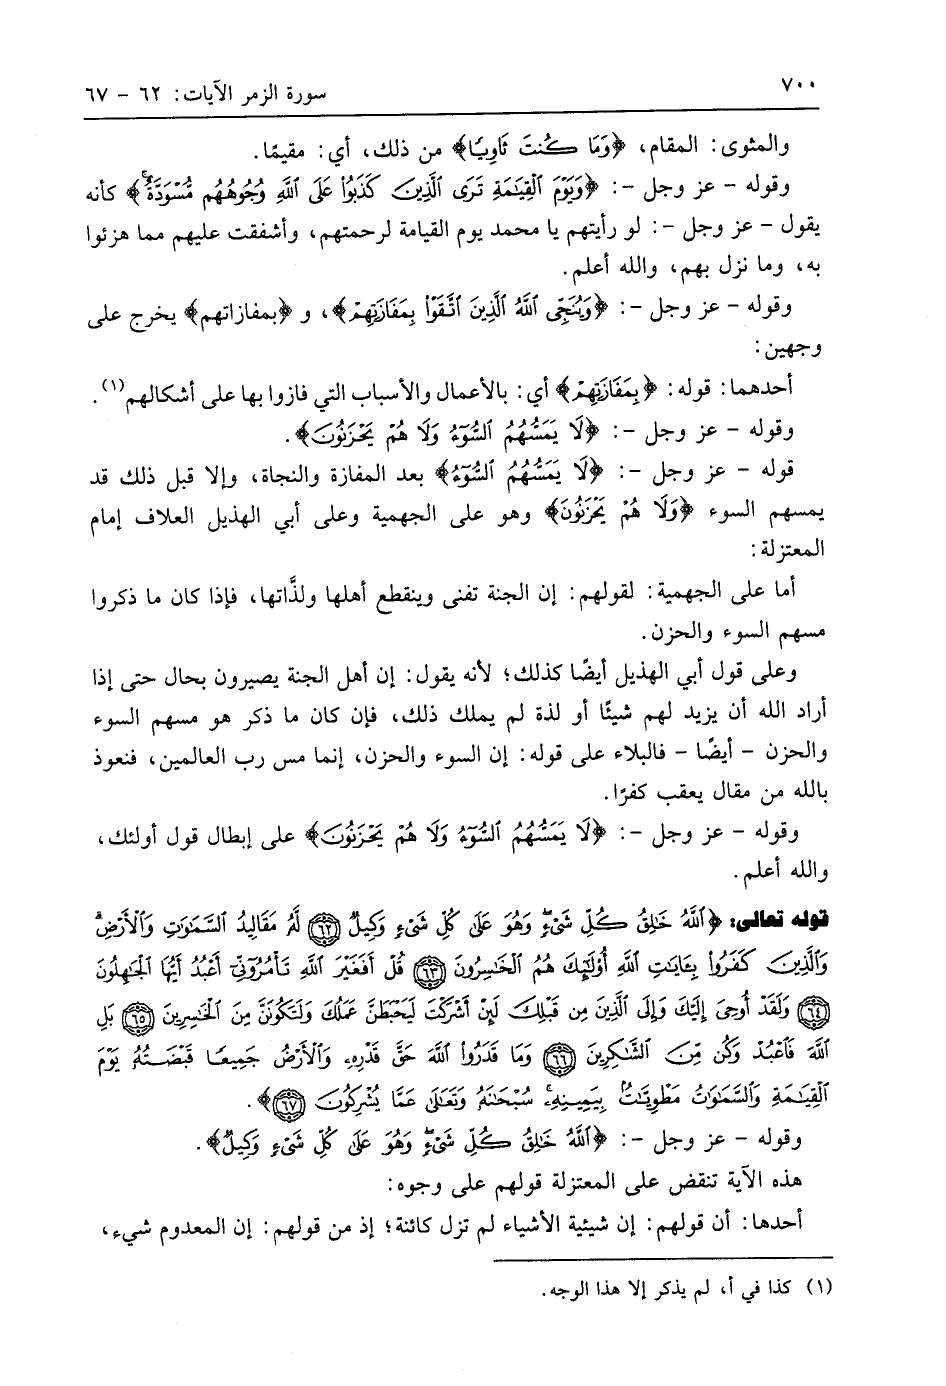 ٧٠٠
سورة الزمر الآيات: ٦٢ - ٦٧
والمثوى: المقام، ﴿وَمَا كُنتَ ثَاوِيًا﴾ من ذلك، أي: مقيمًا.
وقوله - عز وجل -: ﴿وَيَوْمَ ٱلْقِيَٰمَةِ تَرَى ٱلَّذِينَ كَذَبُوا۟ عَلَى ٱللَّهِ وُجُوهُهُم مُّسْوَدَّةٌ﴾ كأنه
يقول - عز وجل -: لو رأيتهم يا محمد يوم القيامة لرحمتهم، وأشفقت عليهم مما هزئوا
به، وما نزل بهم، والله أعلم.
وقوله - عز وجل -: ﴿وَيُنَجِّى ٱللَّهُ ٱلَّذِينَ ٱتَّقَوْا۟ بِمَفَازَتِهِمْ﴾، و ﴿بمفازاتهم﴾ يخرج على
وجهين:
أحدهما: قوله: ﴿بِمَفَازَتِهِمْ﴾ أي: بالأعمال والأسباب التي فازوا بها على أشكالهم(١).
وقوله - عز وجل -: ﴿لَا يَمَسُّهُمُ ٱلسُّوٓءُ وَلَا هُمْ يَحْزَنُونَ﴾.
قوله - عز وجل -: ﴿لَا يَمَسُّهُمُ ٱلسُّوٓءُ﴾ بعد المفازة والنجاة، وإلا قبل ذلك قد
يمسهم السوء ﴿وَلَا هُمْ يَحْزَنُونَ﴾ وهو على الجهمية وعلى أبي الهذيل العلاف إمام
المعتزلة:
أما على الجهمية: لقولهم: إن الجنة تفنى وينقطع أهلها ولذَّاتها، فإذا كان ما ذكروا
مسهم السوء والحزن.
وعلى قول أبي الهذيل أيضًا كذلك؛ لأنه يقول: إن أهل الجنة يصيرون بحال حتى إذا
أراد الله أن يزيد لهم شيئًا أو لذة لم يملك ذلك، فإن كان ما ذكر هو مسهم السوء
والحزن - أيضًا - فالبلاء على قوله: إن السوء والحزن، إنما مس رب العالمين، فنعوذ
بالله من مقال يعقب كفرًا.
وقوله - عز وجل -: ﴿لَا يَمَسُّهُمُ ٱلسُّوٓءُ وَلَا هُمْ يَحْزَنُونَ﴾ على إبطال قول أولئك،
والله أعلم.
قوله تعالى: ﴿ٱللَّهُ خَٰلِقُ كُلِّ شَىْءٍ وَهُوَ عَلَىٰ كُلِّ شَىْءٍ وَكِيلٌ ٦٢ لَّهُۥ مَقَالِيدُ ٱلسَّمَٰوَٰتِ وَٱلْأَرْضِ
وَٱلَّذِينَ كَفَرُوا۟ بِـَٔايَٰتِ ٱللَّهِ أُو۟لَٰٓئِكَ هُمُ ٱلْخَٰسِرُونَ ٦٣ قُلْ أَفَغَيْرَ ٱللَّهِ تَأْمُرُوٓنِّىٓ أَعْبُدُ أَيُّهَا ٱلْجَٰهِلُونَ
٦٤ وَلَقَدْ أُوحِىَ إِلَيْكَ وَإِلَى ٱلَّذِينَ مِن قَبْلِكَ لَئِنْ أَشْرَكْتَ لَيَحْبَطَنَّ عَمَلُكَ وَلَتَكُونَنَّ مِنَ ٱلْخَٰسِرِينَ ٦٥ بَلِ
ٱللَّهَ فَٱعْبُدْ وَكُن مِّنَ ٱلشَّٰكِرِينَ ٦٦ وَمَا قَدَرُوا۟ ٱللَّهَ حَقَّ قَدْرِهِۦ وَٱلْأَرْضُ جَمِيعًا قَبْضَتُهُۥ يَوْمَ
ٱلْقِيَٰمَةِ وَٱلسَّمَٰوَٰتُ مَطْوِيَّٰتٌۢ بِيَمِينِهِۦ سُبْحَٰنَهُۥ وَتَعَٰلَىٰ عَمَّا يُشْرِكُونَ ٦٧﴾.
وقوله - عز وجل -: ﴿ٱللَّهُ خَٰلِقُ كُلِّ شَىْءٍ وَهُوَ عَلَىٰ كُلِّ شَىْءٍ وَكِيلٌ﴾.
هذه الآية تنقض على المعتزلة قولهم على وجوه:
أحدها: أن قولهم: إن شيئية الأشياء لم تزل كائنة؛ إذ من قولهم: إن المعدوم شيء،
(١) كذا في أ، لم يذكر إلا هذا الوجه.